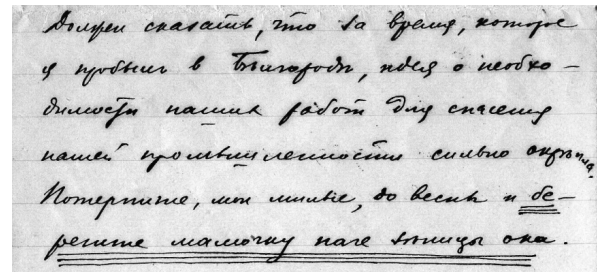 Должен сказать, что за время, которое
я пробыл в Белгороде, идея о необхо-
димости наших работ для спасения
нашей промышленности сильно окрѣпла.
Потерпите, мои милые, до весны и бе-
регите мамочку паче зѣницы ока.